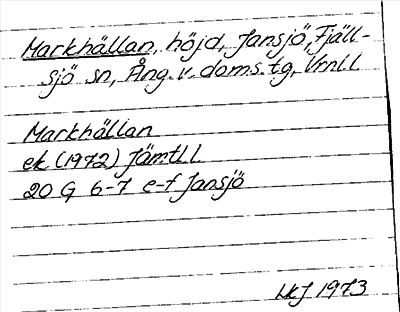 Markhällan, höjd, Jansjö, Fjäll-
sjö sn, Ång. v. doms. tg, Vrnll
Markhällan
ek (1972) Jämtl l
20 G 6-7 e-f Jansjö
LkJ 1973